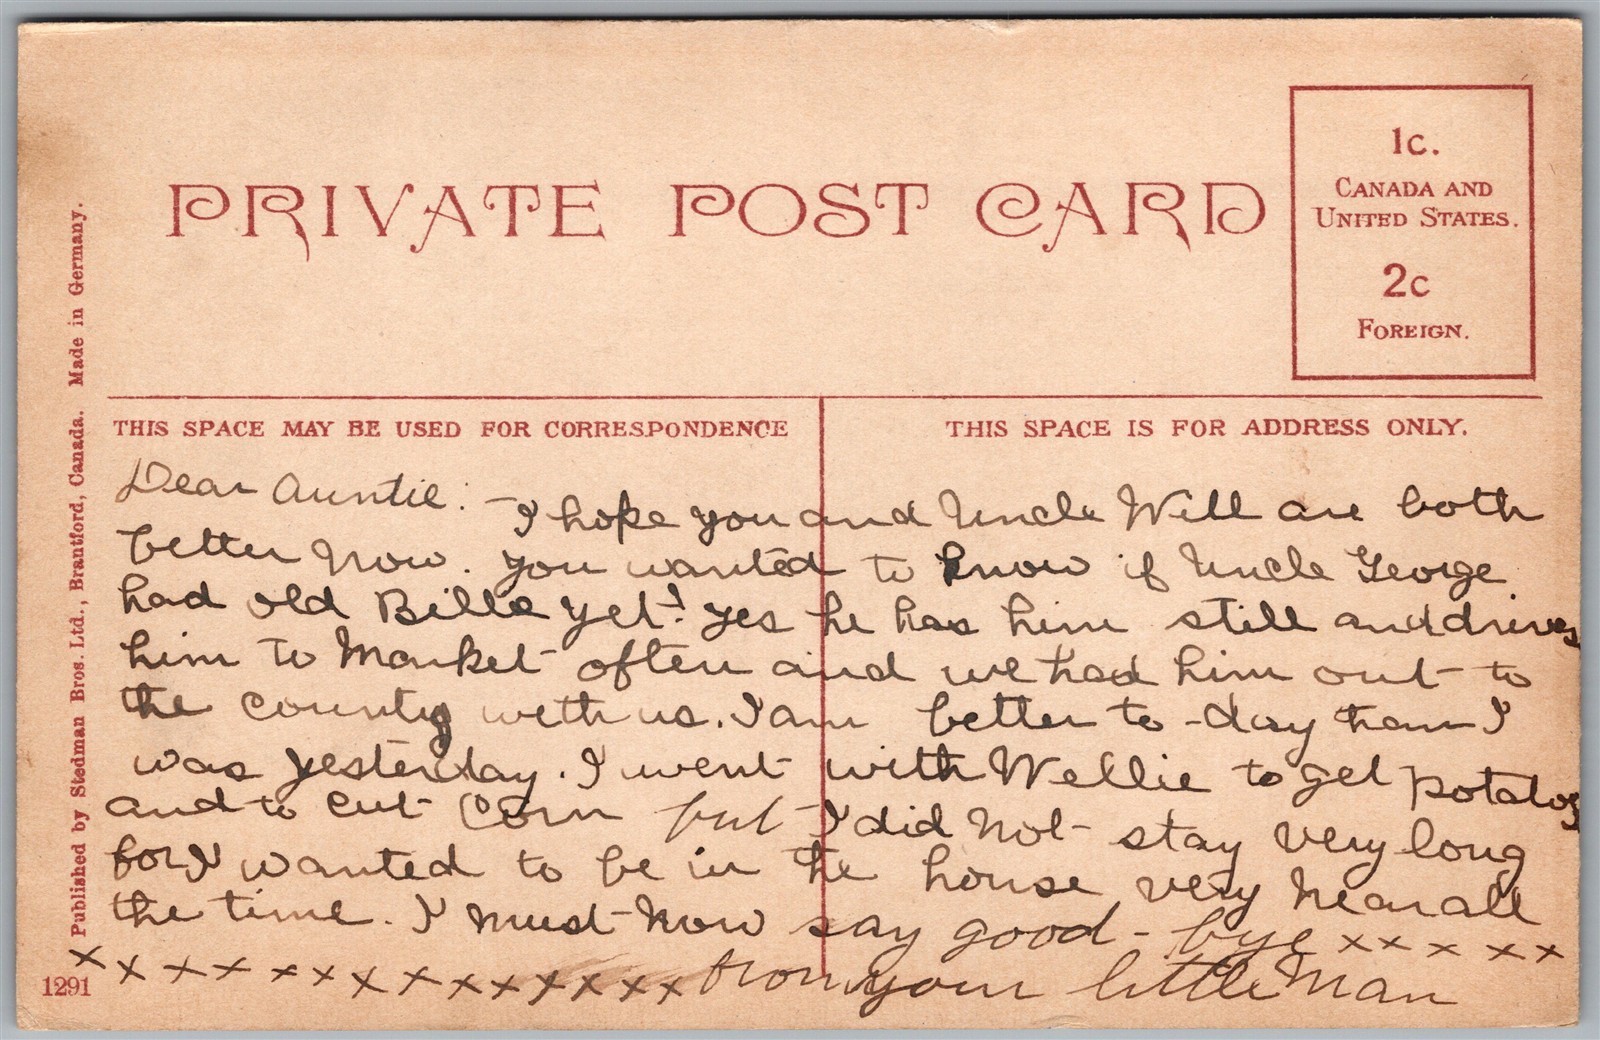 PRIVATE POST CARD
1c.
CANADA AND
UNITED STATES.
2c
FOREIGN.
THIS SPACE MAY BE USED FOR CORRESPONDENCE
THIS SPACE IS FOR ADDRESS ONLY.
Dear Auntie: - I hope you and Uncle Will are both
better now. you wanted to know if Uncle George
had old Bills yet? yes he has him still and drives
him to Market often and we had him out to
the country with us. I am better to-day than I
was yesterday. I went with Wellie to get potatoes
and to cut corn but I did not stay very long
for I wanted to be in the house very near all
the time. I must now say good-bye x x x x x
x x x x x x x x x x x x x x from your little Man
Published by Stedman Bros. Ltd., Brantford, Canada. Made in Germany.
1291